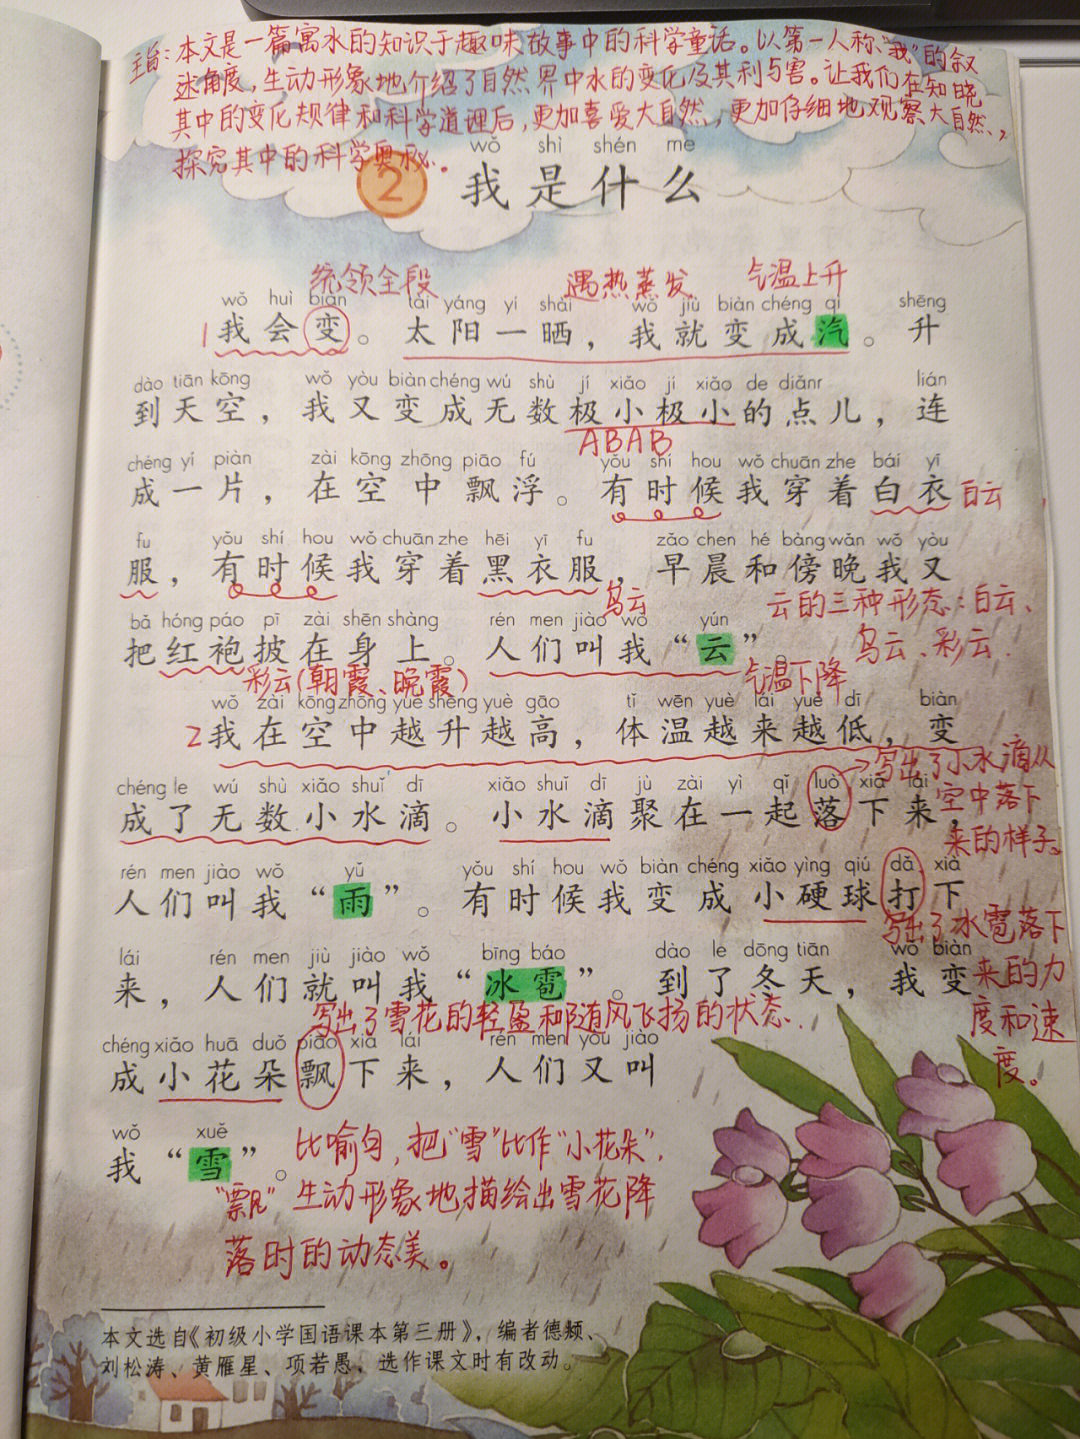 主旨：本文是一篇寓水的知识于趣味故事中的科学童话。以第一人称“我”的叙
述角度，生动形象地介绍了自然界中水的变化及其利与害。让我们在知晓
其中的变化规律和科学道理后，更加喜爱大自然，更加仔细地观察大自然、
探究其中的科学奥秘。
wǒ shì shén me
2 我是什么
统领全段 遇热蒸发 气温上升
wǒ huì biàn tài yáng yí shài wǒ jiù biàn chéng qì shēng
1 我会变。太阳一晒，我就变成汽。升
dào tiān kōng wǒ yòu biàn chéng wú shù jí xiǎo jí xiǎo de diǎnr lián
到天空，我又变成无数极小极小的点儿，连
ABAB
chéng yí piàn zài kōng zhōng piāo fú yǒu shí hou wǒ chuān zhe bái yī
成一片，在空中飘浮。有时候我穿着白衣 白云
fu yǒu shí hou wǒ chuān zhe hēi yī fu zǎo chen hé bàng wǎn wǒ yòu
服，有时候我穿着黑衣服，早晨和傍晚我又
乌云 云的三种形态：白云、
bǎ hóng páo pī zài shēn shàng rén men jiào wǒ yún
把红袍披在身上。人们叫我“云”。 乌云、彩云.
彩云(朝霞、晚霞) 气温下降
wǒ zài kōng zhōng yuè shēng yuè gāo tǐ wēn yuè lái yuè dī biàn
2 我在空中越升越高，体温越来越低，变
chéng le wú shù xiǎo shuǐ dī xiǎo shuǐ dī jù zài yì qǐ luò xià lái
成了无数小水滴。小水滴聚在一起落下来，
写出了小水滴从
空中落下
来的样子。
rén men jiào wǒ yǔ yǒu shí hou wǒ biàn chéng xiǎo yìng qiú dǎ xià
人们叫我“雨”。有时候我变成小硬球打下
写出了冰雹落下
来的力
度和速
度。
lái rén men jiù jiào wǒ bīng báo dào le dōng tiān wǒ biàn
来，人们就叫我“冰雹”。到了冬天，我变
写出了雪花的轻盈和随风飞扬的状态.
chéng xiǎo huā duǒ piāo xià lái rén men yòu jiào
成小花朵飘下来，人们又叫
wǒ xuě
我“雪”。
比喻句，把“雪”比作“小花朵”，
“飘” 生动形象地描绘出雪花降
落时的动态美。
本文选自《初级小学国语课本第三册》，编者德颊、
刘松涛、黄雁星、项若愚，选作课文时有改动。